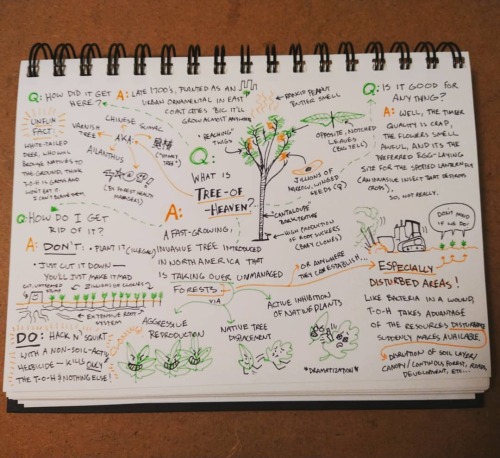 Q: HOW DID IT GET
HERE?
A: LATE 1700's, PLANTED AS AN
URBAN ORNAMENTAL IN EAST
COAST CITIES BIC IT'LL
GROW ALMOST ANYWHERE
UNFUN
FACT:
WHITE-TAILED
DEER, WHO WILL
BROWSE NATIVES TO
THE GROUND, THINK
T-O-H IS GROSS AND
WON'T EAT IT.
I CAN'T BLAME THEM.
CHINESE SUMAC
VARNISH
TREE
AKA:
AILANTHUS
(BY FOREST HEALTH
MANAGERS)
"REACHING"
TWIGS
PEANUT
BUTTER SMELL
OPPOSITE, NOTCHED
LEAVES
(BIG TELL)
JILLIONS OF
NARROW, WINGED
SEEDS (♀)
"CANTALOUPE"
BARK TEXTURE
HIGH PRODUCTION
OF ROOT SUCKERS
(BABY CLONES)
Q:
WHAT IS
TREE-OF-
HEAVEN?
A:
A FAST-GROWING,
INVASIVE TREE INTRODUCED
IN NORTH AMERICA THAT
IS TAKING OVER UNMANAGED
FORESTS
VIA
OR ANYWHERE
THEY CAN ESTABLISH,
AGGRESSIVE
REPRODUCTION
NATIVE TREE
DISPLACEMENT
ACTIVE INHIBITION
OF NATIVE PLANTS
*DRAMATIZATION*
CLONING
Q: IS IT GOOD FOR
ANYTHING?
A: WELL, THE TIMBER
QUALITY IS CRAP,
THE FLOWERS SMELL
AWFUL, AND IT'S THE
PREFERRED EGG-LAYING
SITE FOR THE SPOTTED LANTERN FLY
(AN INVASIVE INSECT THAT DESTROYS
CROPS).
SO, NOT REALLY.
Q: HOW DO I GET
RID OF IT?
A: DON'T: • PLANT IT (ILLEGAL)
• JUST CUT IT DOWN —
YOU'LL JUST MAKE IT MAD
CUT, UNTREATED
STUMP
ZILLIONS OF CLONES
EXTENSIVE ROOT
SYSTEM
DO: HACK N' SQUIRT
WITH A NON-SOIL-ACTIVE
HERBICIDE — KILLS ONLY
THE T-O-H & NOTHING ELSE!
DON'T MIND
IF WE DO!
ESPECIALLY
DISTURBED AREAS!
LIKE BACTERIA IN A WOUND,
T-O-H TAKES ADVANTAGE
OF THE RESOURCES DISTURBANCE
SUDDENLY MAKES AVAILABLE
DISRUPTION OF SOIL LAYER/
CANOPY/CONTINUOUS FOREST, ROADS,
DEVELOPMENT, ETC...